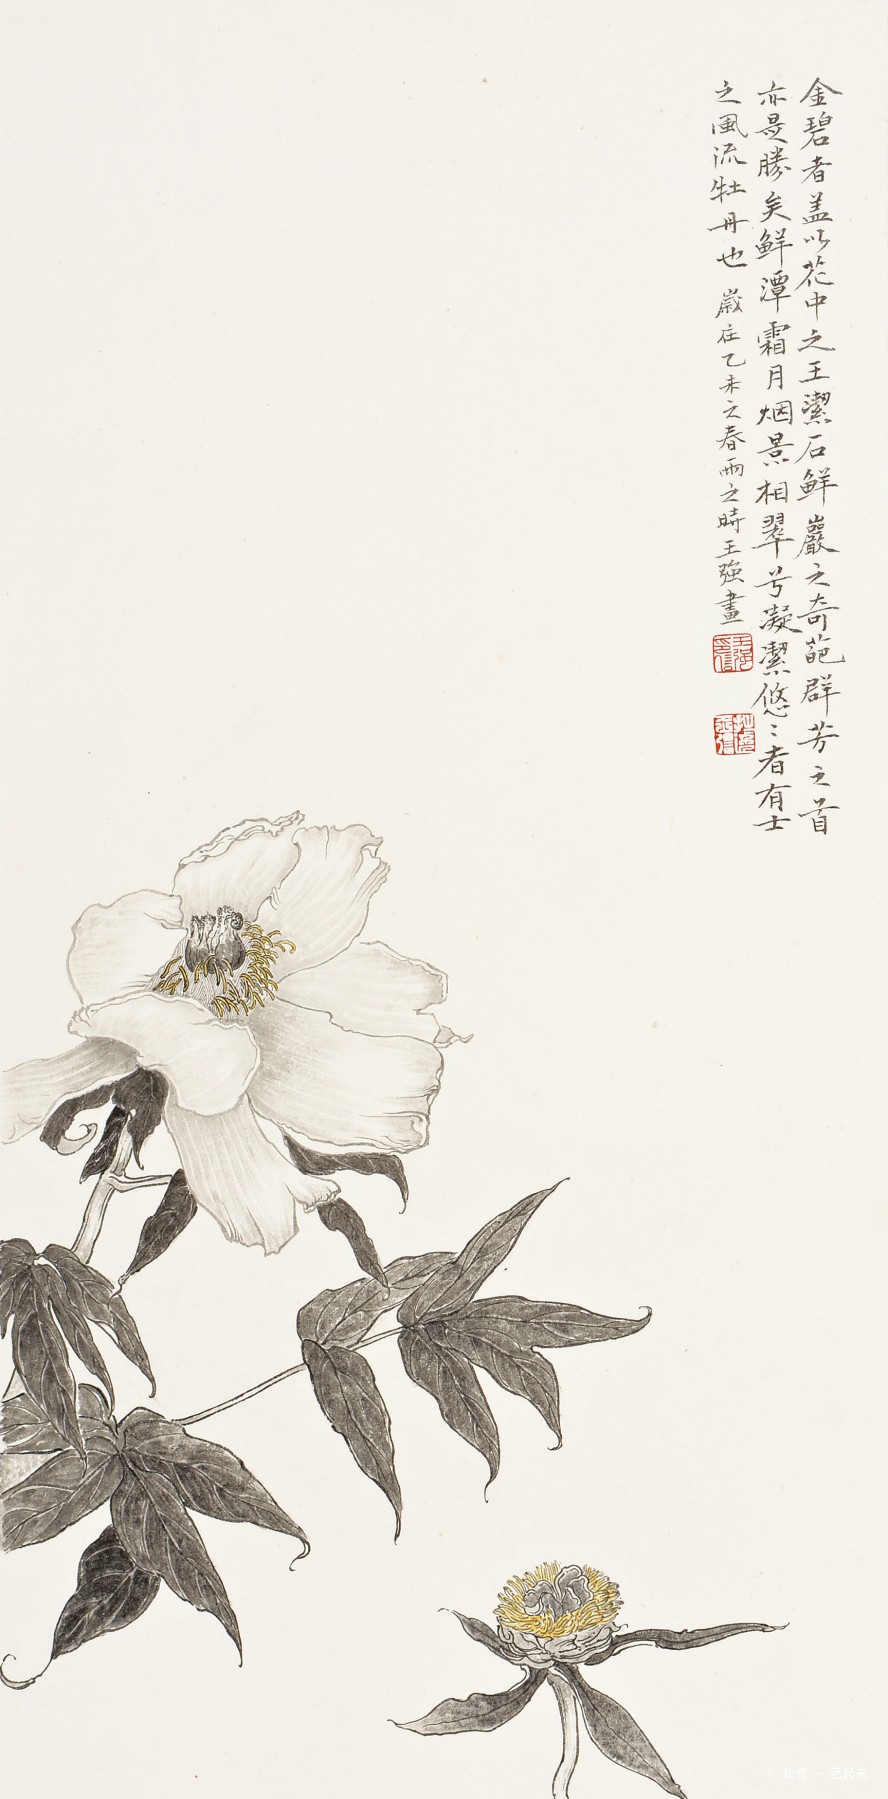 金碧者盖以花中之王潔石鮮巖之奇葩群芳之首
亦是勝矣鮮潭霜月烟景相翠兮凝潔悠〻者有士
之風流牡丹也 歲在乙未之春雨之時王强畫
王强